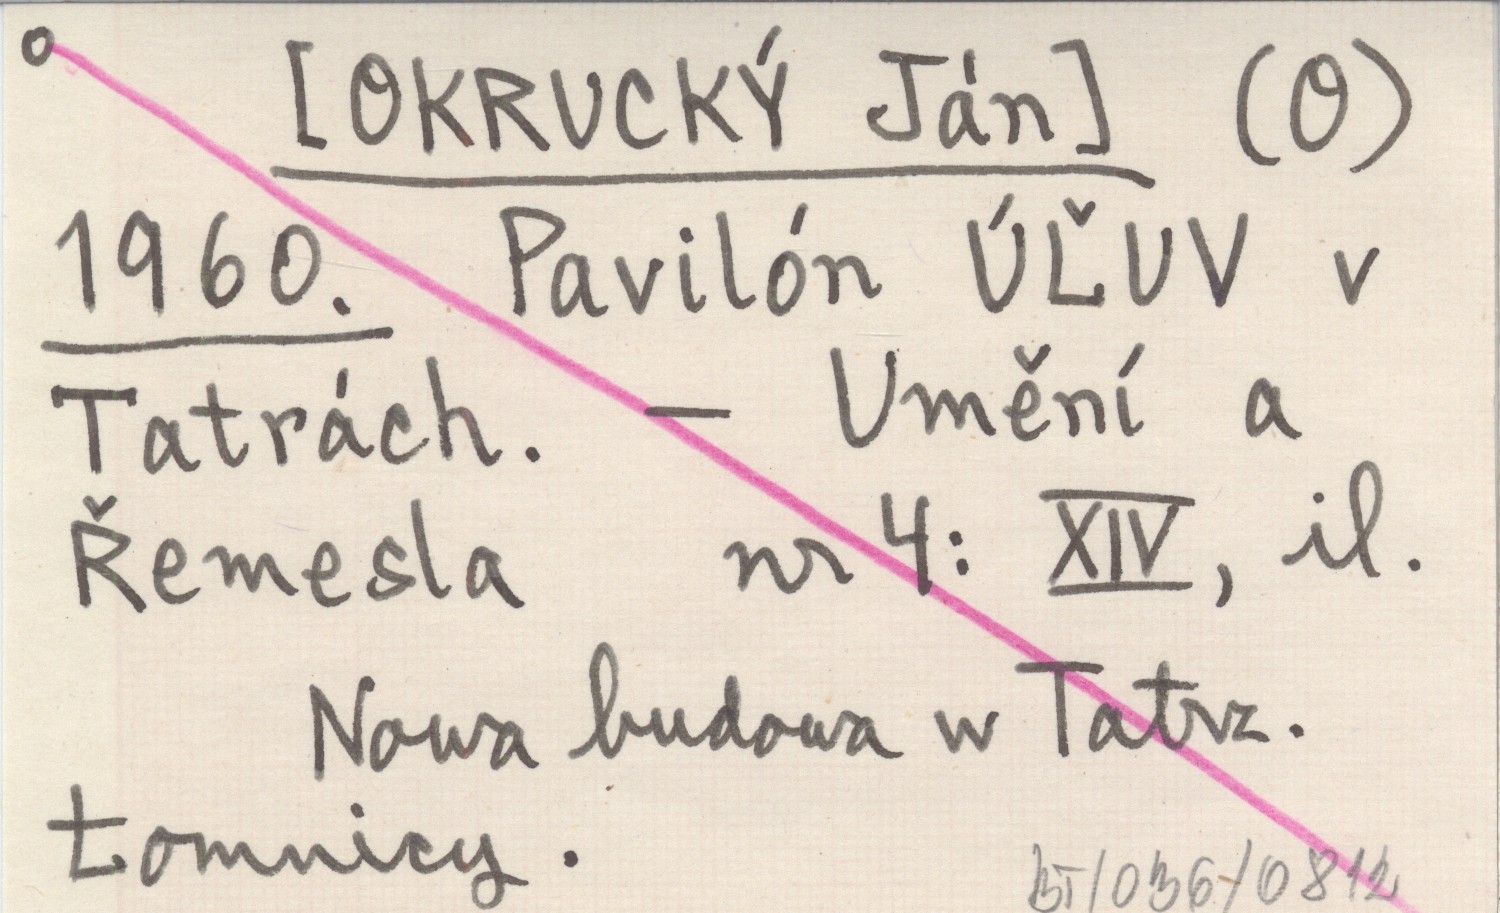 [OKRUCKÝ Ján] (O)
1960. Pavilón ÚĽUV v
Tatrách. — Umění a
Řemesla nr 4: XIV, il.
Nowa budowa w Tatrz.
Łomnicy.
BT/036/0812